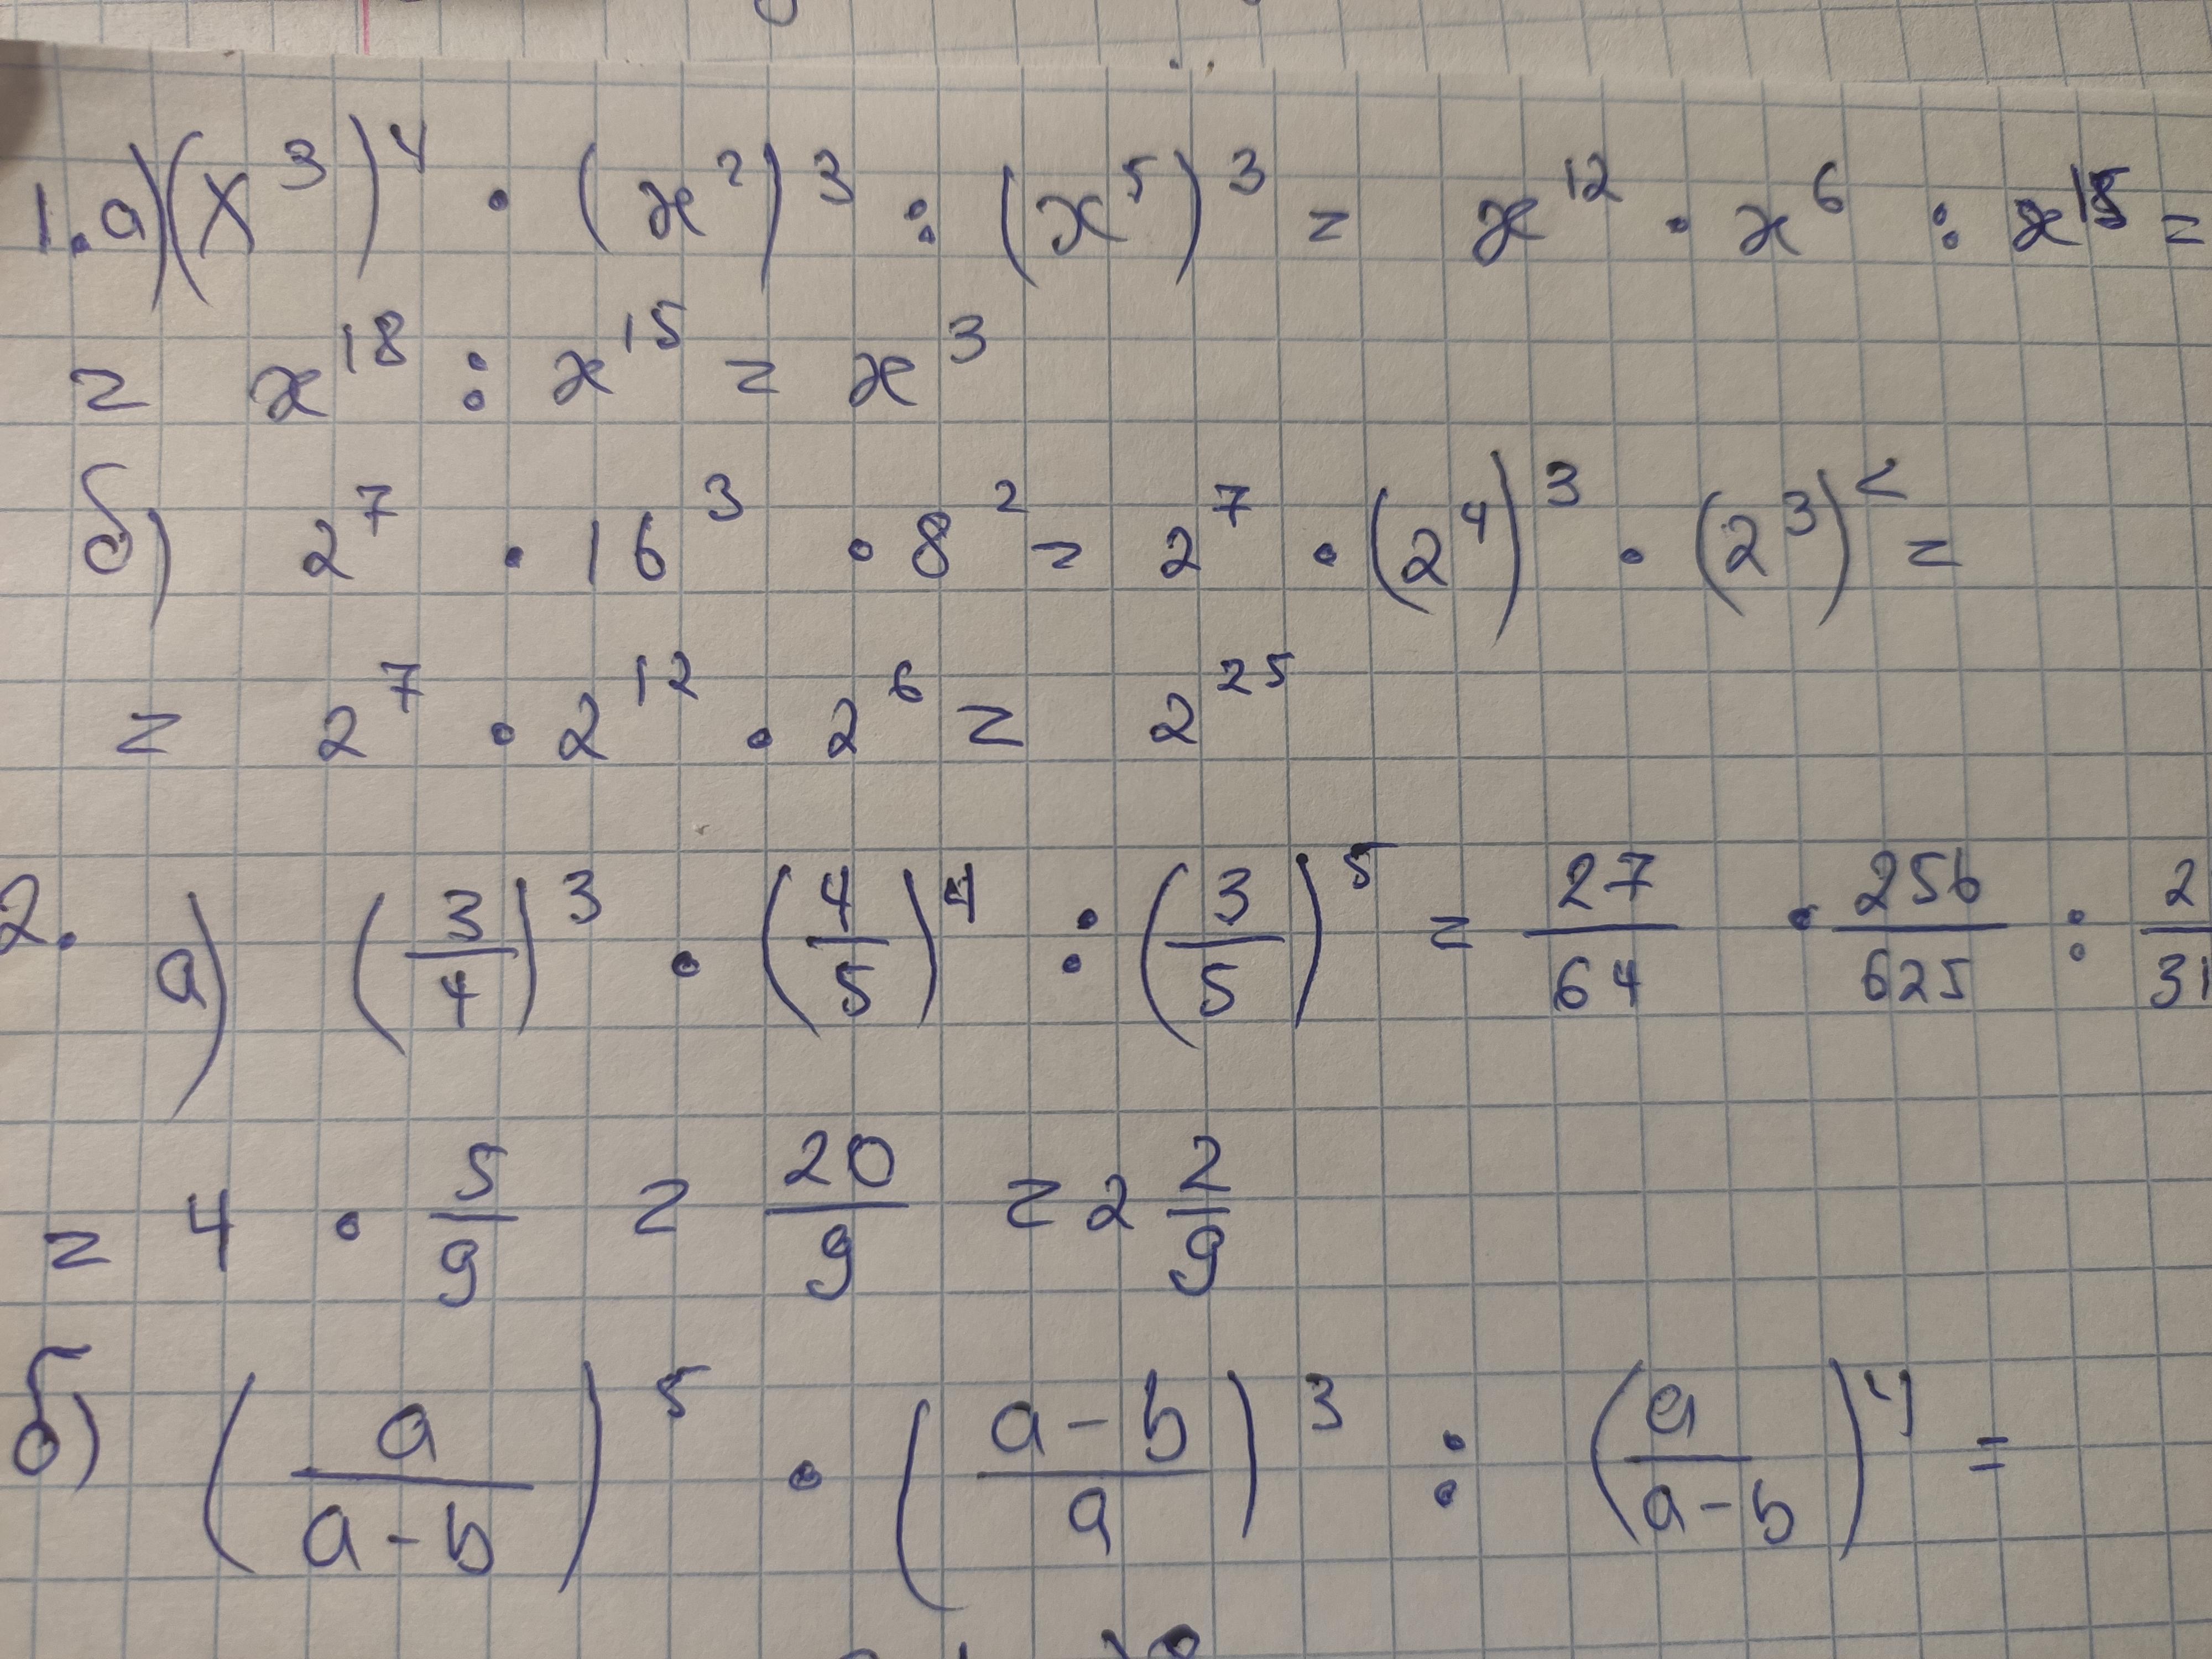 1. а) (x³)⁴ · (x²)³ : (x⁵)³ = x¹² · x⁶ : x¹⁵ =
= x¹⁸ : x¹⁵ = x³
б) 2⁷ · 16³ · 8² = 2⁷ · (2⁴)³ · (2³)² =
= 2⁷ · 2¹² · 2⁶ = 2²⁵
2. а) (3/4)³ · (4/5)⁴ : (3/5)⁵ = 27/64 · 256/625 : 2/31
= 4 · 5/9 = 20/9 = 2 2/9
б) (a/(a-b))⁵ · ((a-b)/a)³ : (a/(a-b))⁴ =